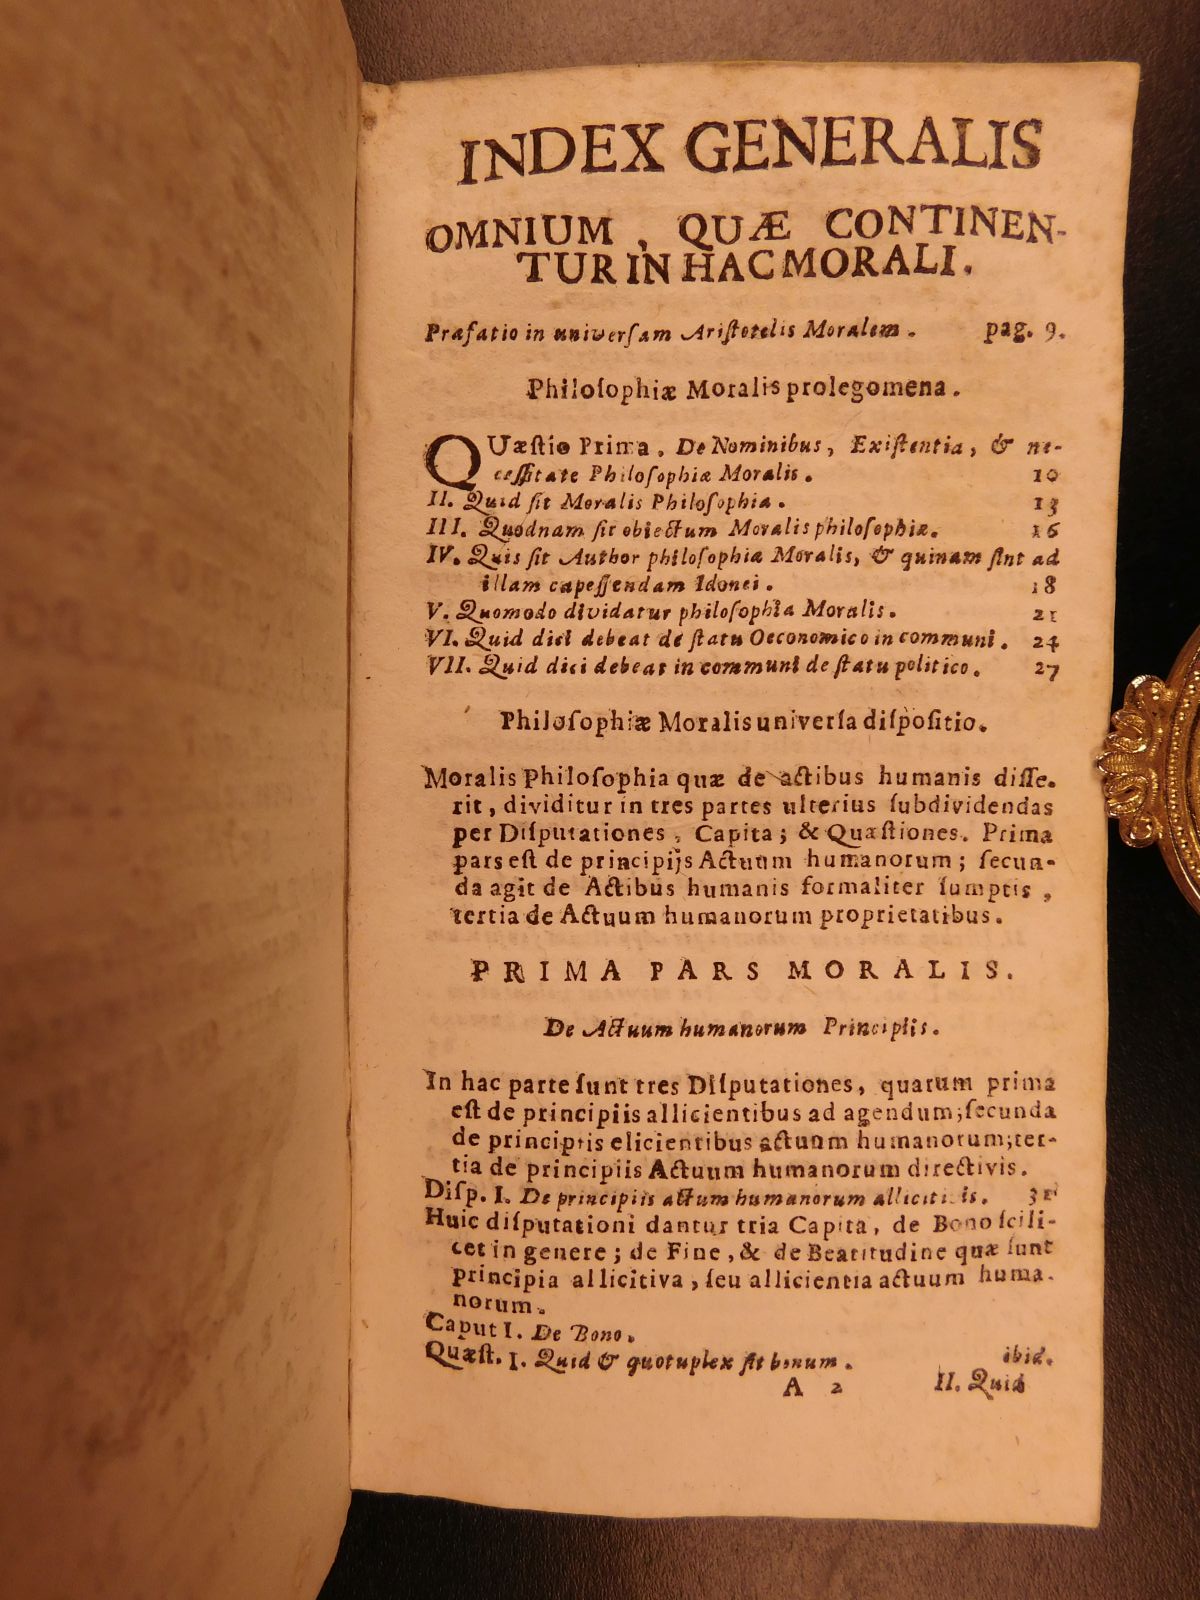 INDEX GENERALIS
OMNIUM, QUÆ CONTINEN-
TUR IN HAC MORALI.
Præfatio in universam Aristotelis Moralem. pag. 9.
Philoſophiæ Moralis prolegomena.
QUæſtio Prima. De Nominibus, Exiſtentia, & ne-
ceſſitate Philoſophiæ Moralis. 10
II. Quid ſit Moralis Philoſophia. 13
III. Quodnam ſit obiectum Moralis philoſophiæ. 16
IV. Quis ſit Author philoſophiæ Moralis, & quinam ſint ad
illam capeſſendam Idonei. 18
V. Quomodo dividatur philoſophia Moralis. 21
VI. Quid dici debeat de ſtatu Oeconomico in communi. 24
VII. Quid dici debeat in communi de ſtatu politico. 27
Philoſophiæ Moralis univerſa diſpoſitio.
Moralis Philoſophia quæ de actibus humanis diſſe-
rit, dividitur in tres partes ulterius ſubdividendas
per Diſputationes, Capita; & Quæſtiones. Prima
pars eſt de principijs Actuum humanorum; ſecun-
da agit de Actibus humanis formaliter ſumptis,
tertia de Actuum humanorum proprietatibus.
PRIMA PARS MORALIS.
De Actuum humanorum Principiis.
In hac parte ſunt tres Diſputationes, quarum prima
eſt de principiis allicientibus ad agendum; ſecunda
de principiis elicientibus actuum humanorum; ter-
tia de principiis Actuum humanorum directivis.
Diſp. I. De principiis actuum humanorum allicitivis. 31
Huic diſputationi dantur tria Capita, de Bono ſcili-
cet in genere; de Fine, & de Beatitudine quæ ſunt
principia allicitiva, ſeu allicientia actuum huma-
norum.
Caput I. De Bono.
Quæſt. I. Quid & quotuplex ſit bonum. ibid.
A 2 II. Quid